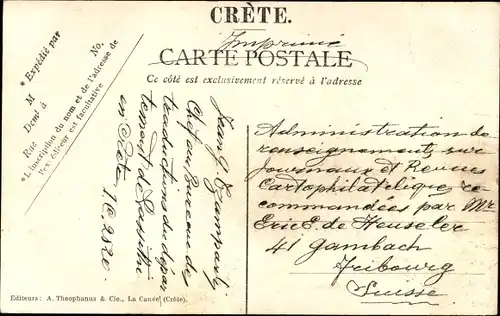 CRÈTE.
Imprimé
CARTE POSTALE
Ce côté est exclusivement réservé à l'adresse
* Expédié par
M No.
Demt à
Rue
*L'inscription du nom et de l'adresse de
l'expéditeur est facultative
Jean G.
Chef au Bureau de
traductions du dépar
tement de Lassithi
en Crète I.C. 2520.
Administration de
renseignements sur
Journaux et Revues
Cartophilatélique re-
commandées par Mr
Eric E. de Heuseler
41 Gambach
Fribourg
Suisse
Editeurs: A. Theophanus & Cie., La Canée (Crète).